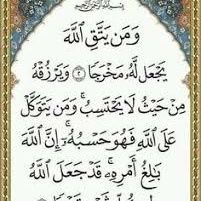 بِسْمِ اللَّهِ الرَّحْمَٰنِ الرَّحِيمِ
وَمَن يَتَّقِ اللَّهَ
يَجْعَل لَّهُ مَخْرَجًا ﴿٢﴾ وَيَرْزُقْهُ
مِنْ حَيْثُ لَا يَحْتَسِبُ ۚ وَمَن يَتَوَكَّلْ
عَلَى اللَّهِ فَهُوَ حَسْبُهُ ۚ إِنَّ اللَّهَ
بَالِغُ أَمْرِهِ ۚ قَدْ جَعَلَ اللَّهُ